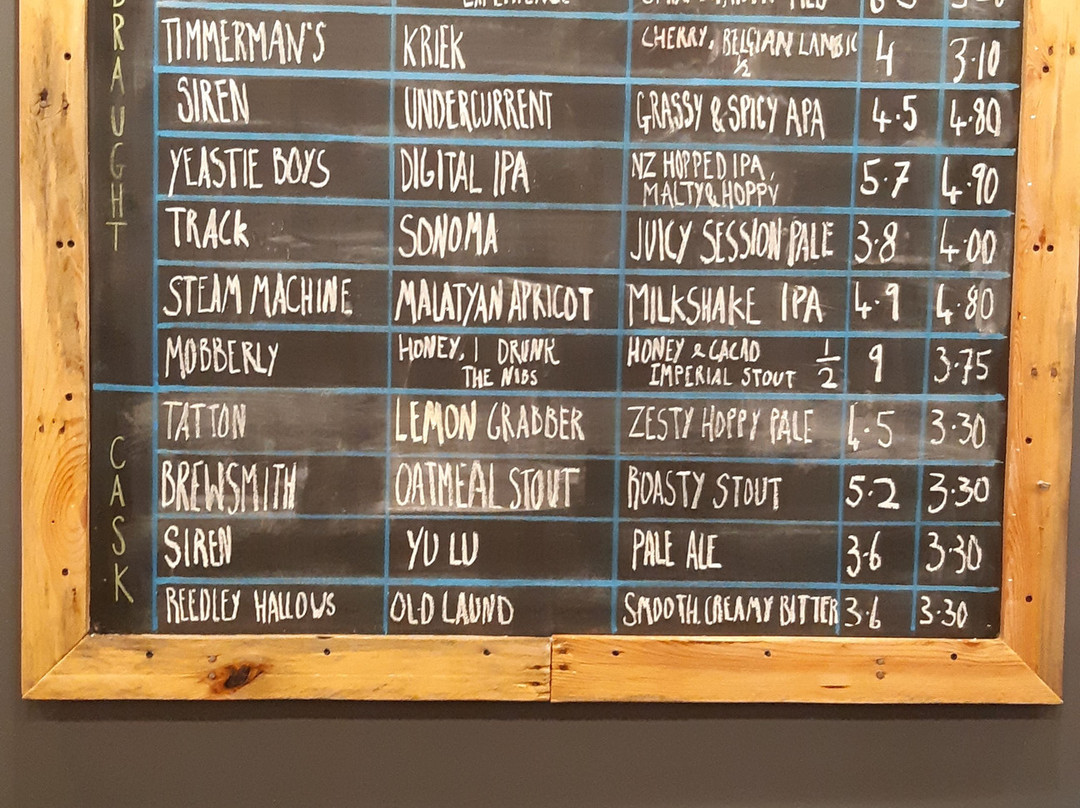 DRAUGHT
TIMMERMAN'S KRIEK CHERRY, BELGIAN LAMBIC 1/2 4 3.10
SIREN UNDERCURRENT GRASSY & SPICY APA 4.5 4.80
YEASTIE BOYS DIGITAL IPA NZ HOPPED IPA, MALTY & HOPPY 5.7 4.90
TRACK SONOMA JUICY SESSION PALE 3.8 4.00
STEAM MACHINE MALATYAN APRICOT MILKSHAKE IPA 4.9 4.80
MOBBERLY HONEY, I DRUNK THE NIBS HONEY & CACAO IMPERIAL STOUT 1/2 9 3.75
CASK
TATTON LEMON GRABBER ZESTY HOPPY PALE 4.5 3.30
BREWSMITH OATMEAL STOUT ROASTY STOUT 5.2 3.30
SIREN YU LU PALE ALE 3.6 3.30
REEDLEY HALLOWS OLD LAUND SMOOTH, CREAMY BITTER 3.6 3.30